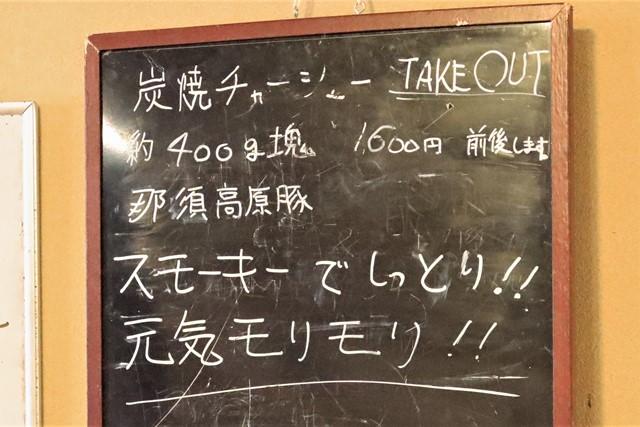 炭焼チャーシュー TAKE OUT
約400g塊 1600円 前後します
那須高原豚
スモーキーでしっとり!!
元気モリモリ!!